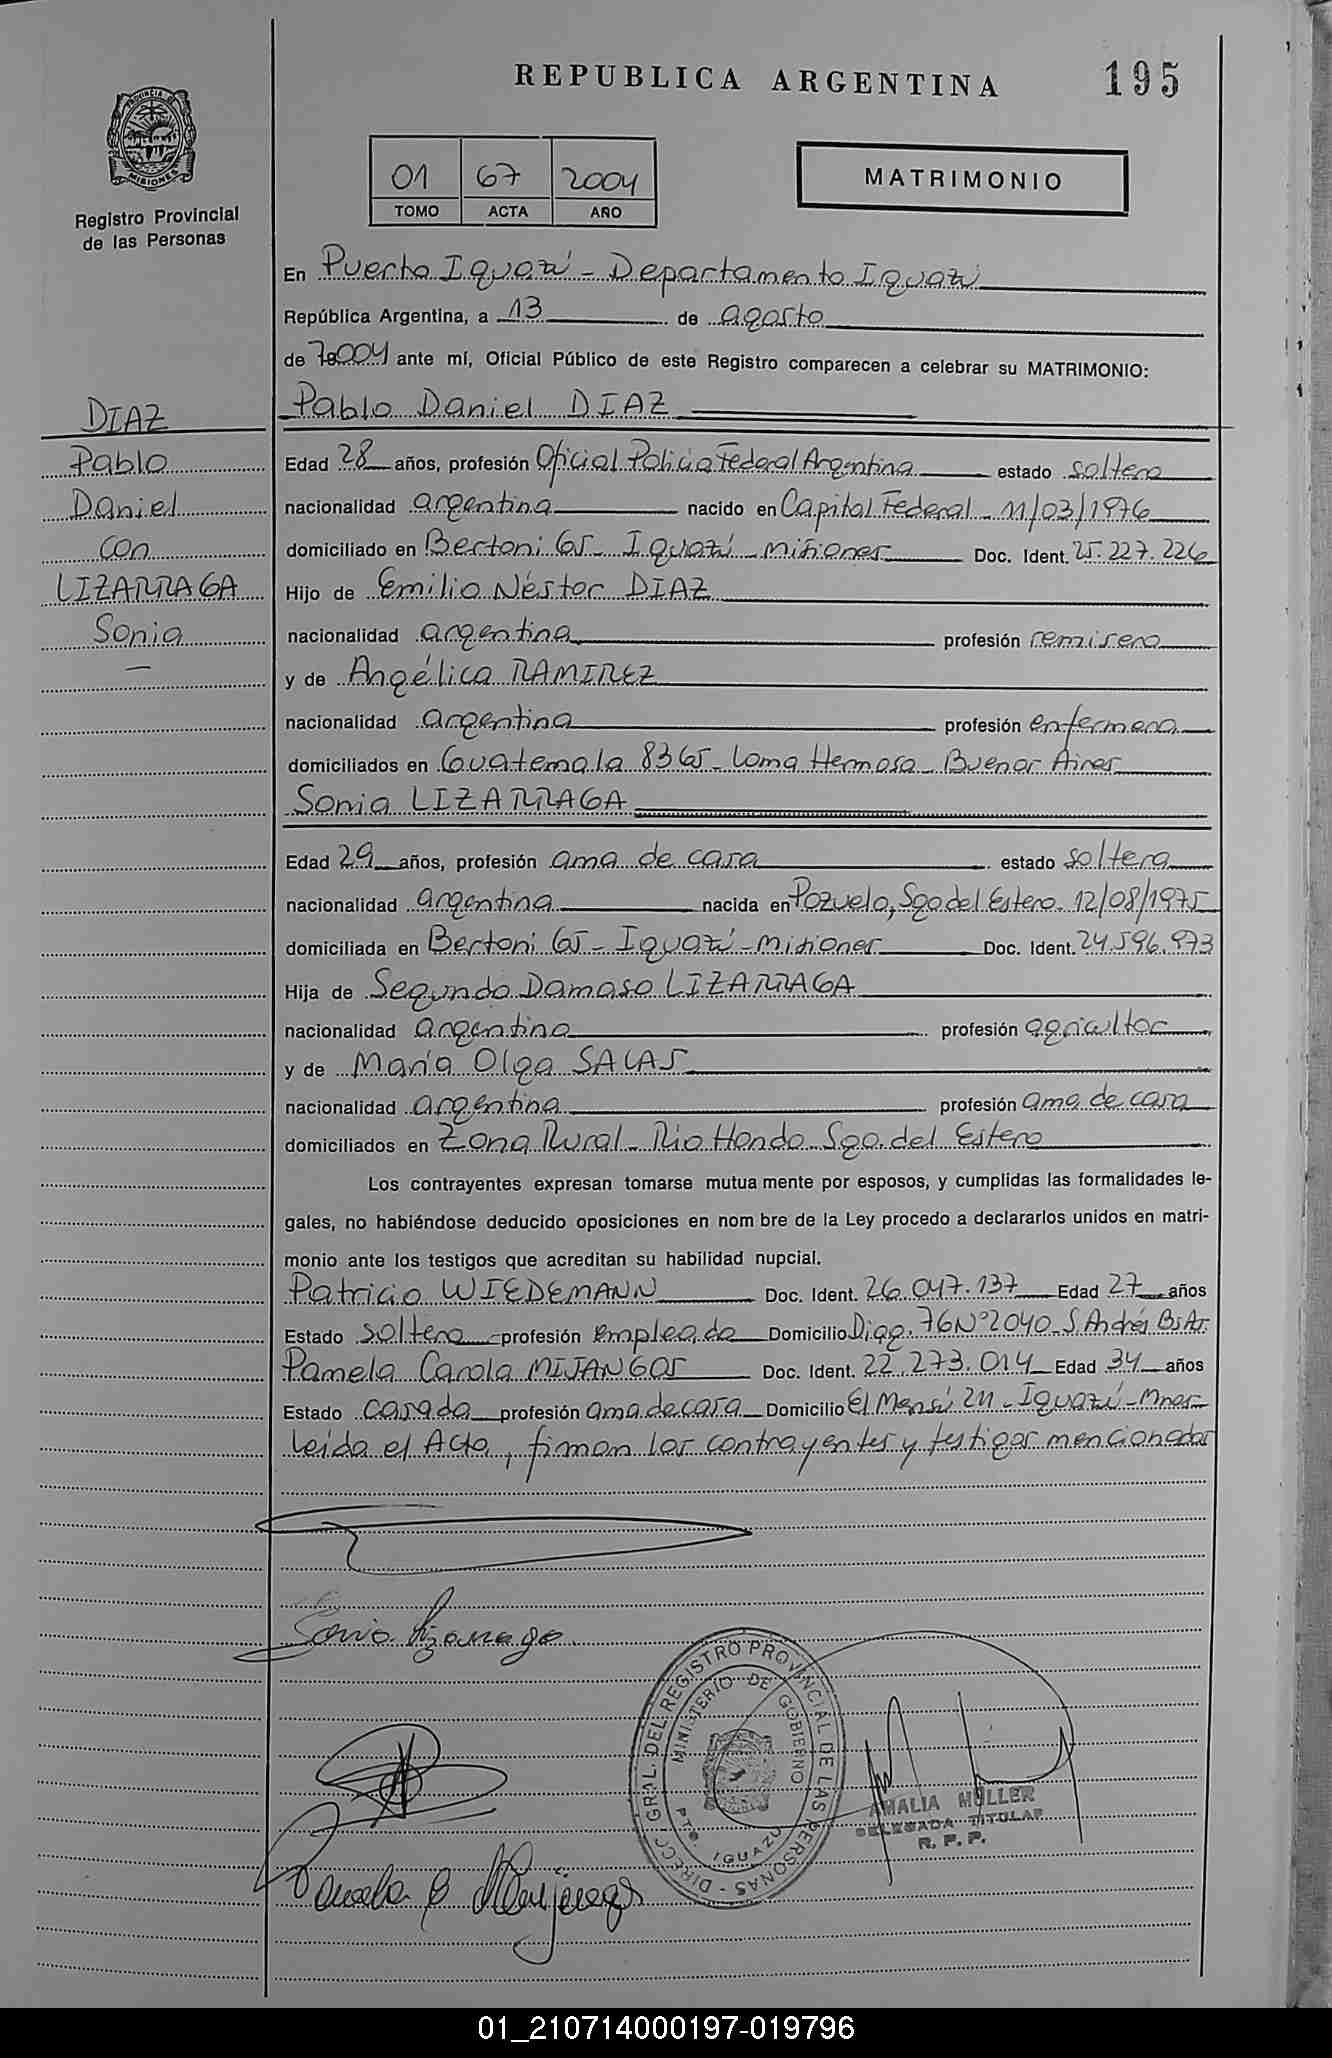 REPUBLICA ARGENTINA
195
PROVINCIA DE
MISIONES
Registro Provincial
de las Personas
01 67 2004
TOMO ACTA AÑO
MATRIMONIO
En Puerto Iguazú - Departamento Iguazú
República Argentina, a 13 de agosto
de 2004 ante mí, Oficial Público de este Registro comparecen a celebrar su MATRIMONIO:
Pablo Daniel DIAZ
DIAZ
Pablo
Daniel
con
LIZARRAGA
Sonia
—
Edad 28 años, profesión Oficial Policía Federal Argentina estado soltero
nacionalidad argentina nacido en Capital Federal - 11/03/1976
domiciliado en Bertoni 65 - Iguazú - Misiones Doc. Ident. 25.227.226
Hijo de Emilio Néstor DIAZ
nacionalidad argentina profesión remisero
y de Angélica RAMIREZ
nacionalidad argentina profesión enfermera
domiciliados en Guatemala 8365 - Loma Hermosa - Buenos Aires
Sonia LIZARRAGA
Edad 29 años, profesión ama de casa estado soltera
nacionalidad argentina nacida en Pozuelo, Sgo del Estero - 12/08/1975
domiciliada en Bertoni 65 - Iguazú - Misiones Doc. Ident. 24.596.973
Hija de Segundo Damaso LIZARRAGA
nacionalidad argentina profesión agricultor
y de María Olga SALAS
nacionalidad argentina profesión ama de casa
domiciliados en Zona Rural - Rio Hondo - Sgo. del Estero
Los contrayentes expresan tomarse mutua mente por esposos, y cumplidas las formalidades le-
gales, no habiéndose deducido oposiciones en nom bre de la Ley procedo a declararlos unidos en matri-
monio ante los testigos que acreditan su habilidad nupcial.
Patricio WIEDEMANN Doc. Ident. 26.047.137 Edad 27 años
Estado soltero profesión empleado Domicilio Diag. 76 Nº 2040 - S. Andrés Bs As.
Pamela Carola MIJANGOS Doc. Ident. 22.273.014 Edad 34 años
Estado casada profesión ama de casa Domicilio El Mensú 211 - Iguazú - Mnes
Leída el Acta, firman los contrayentes y testigos mencionados
Sonia Lizarraga
DIRECC. GRAL. DEL REGISTRO PROVINCIAL DE LAS PERSONAS -
MINISTERIO DE GOBIERNO
PTO. IGUAZU
AMALIA MULLER
DELEGADA TITULAR
R. P. P.
Pamela C Mijangos
01_210714000197-019796